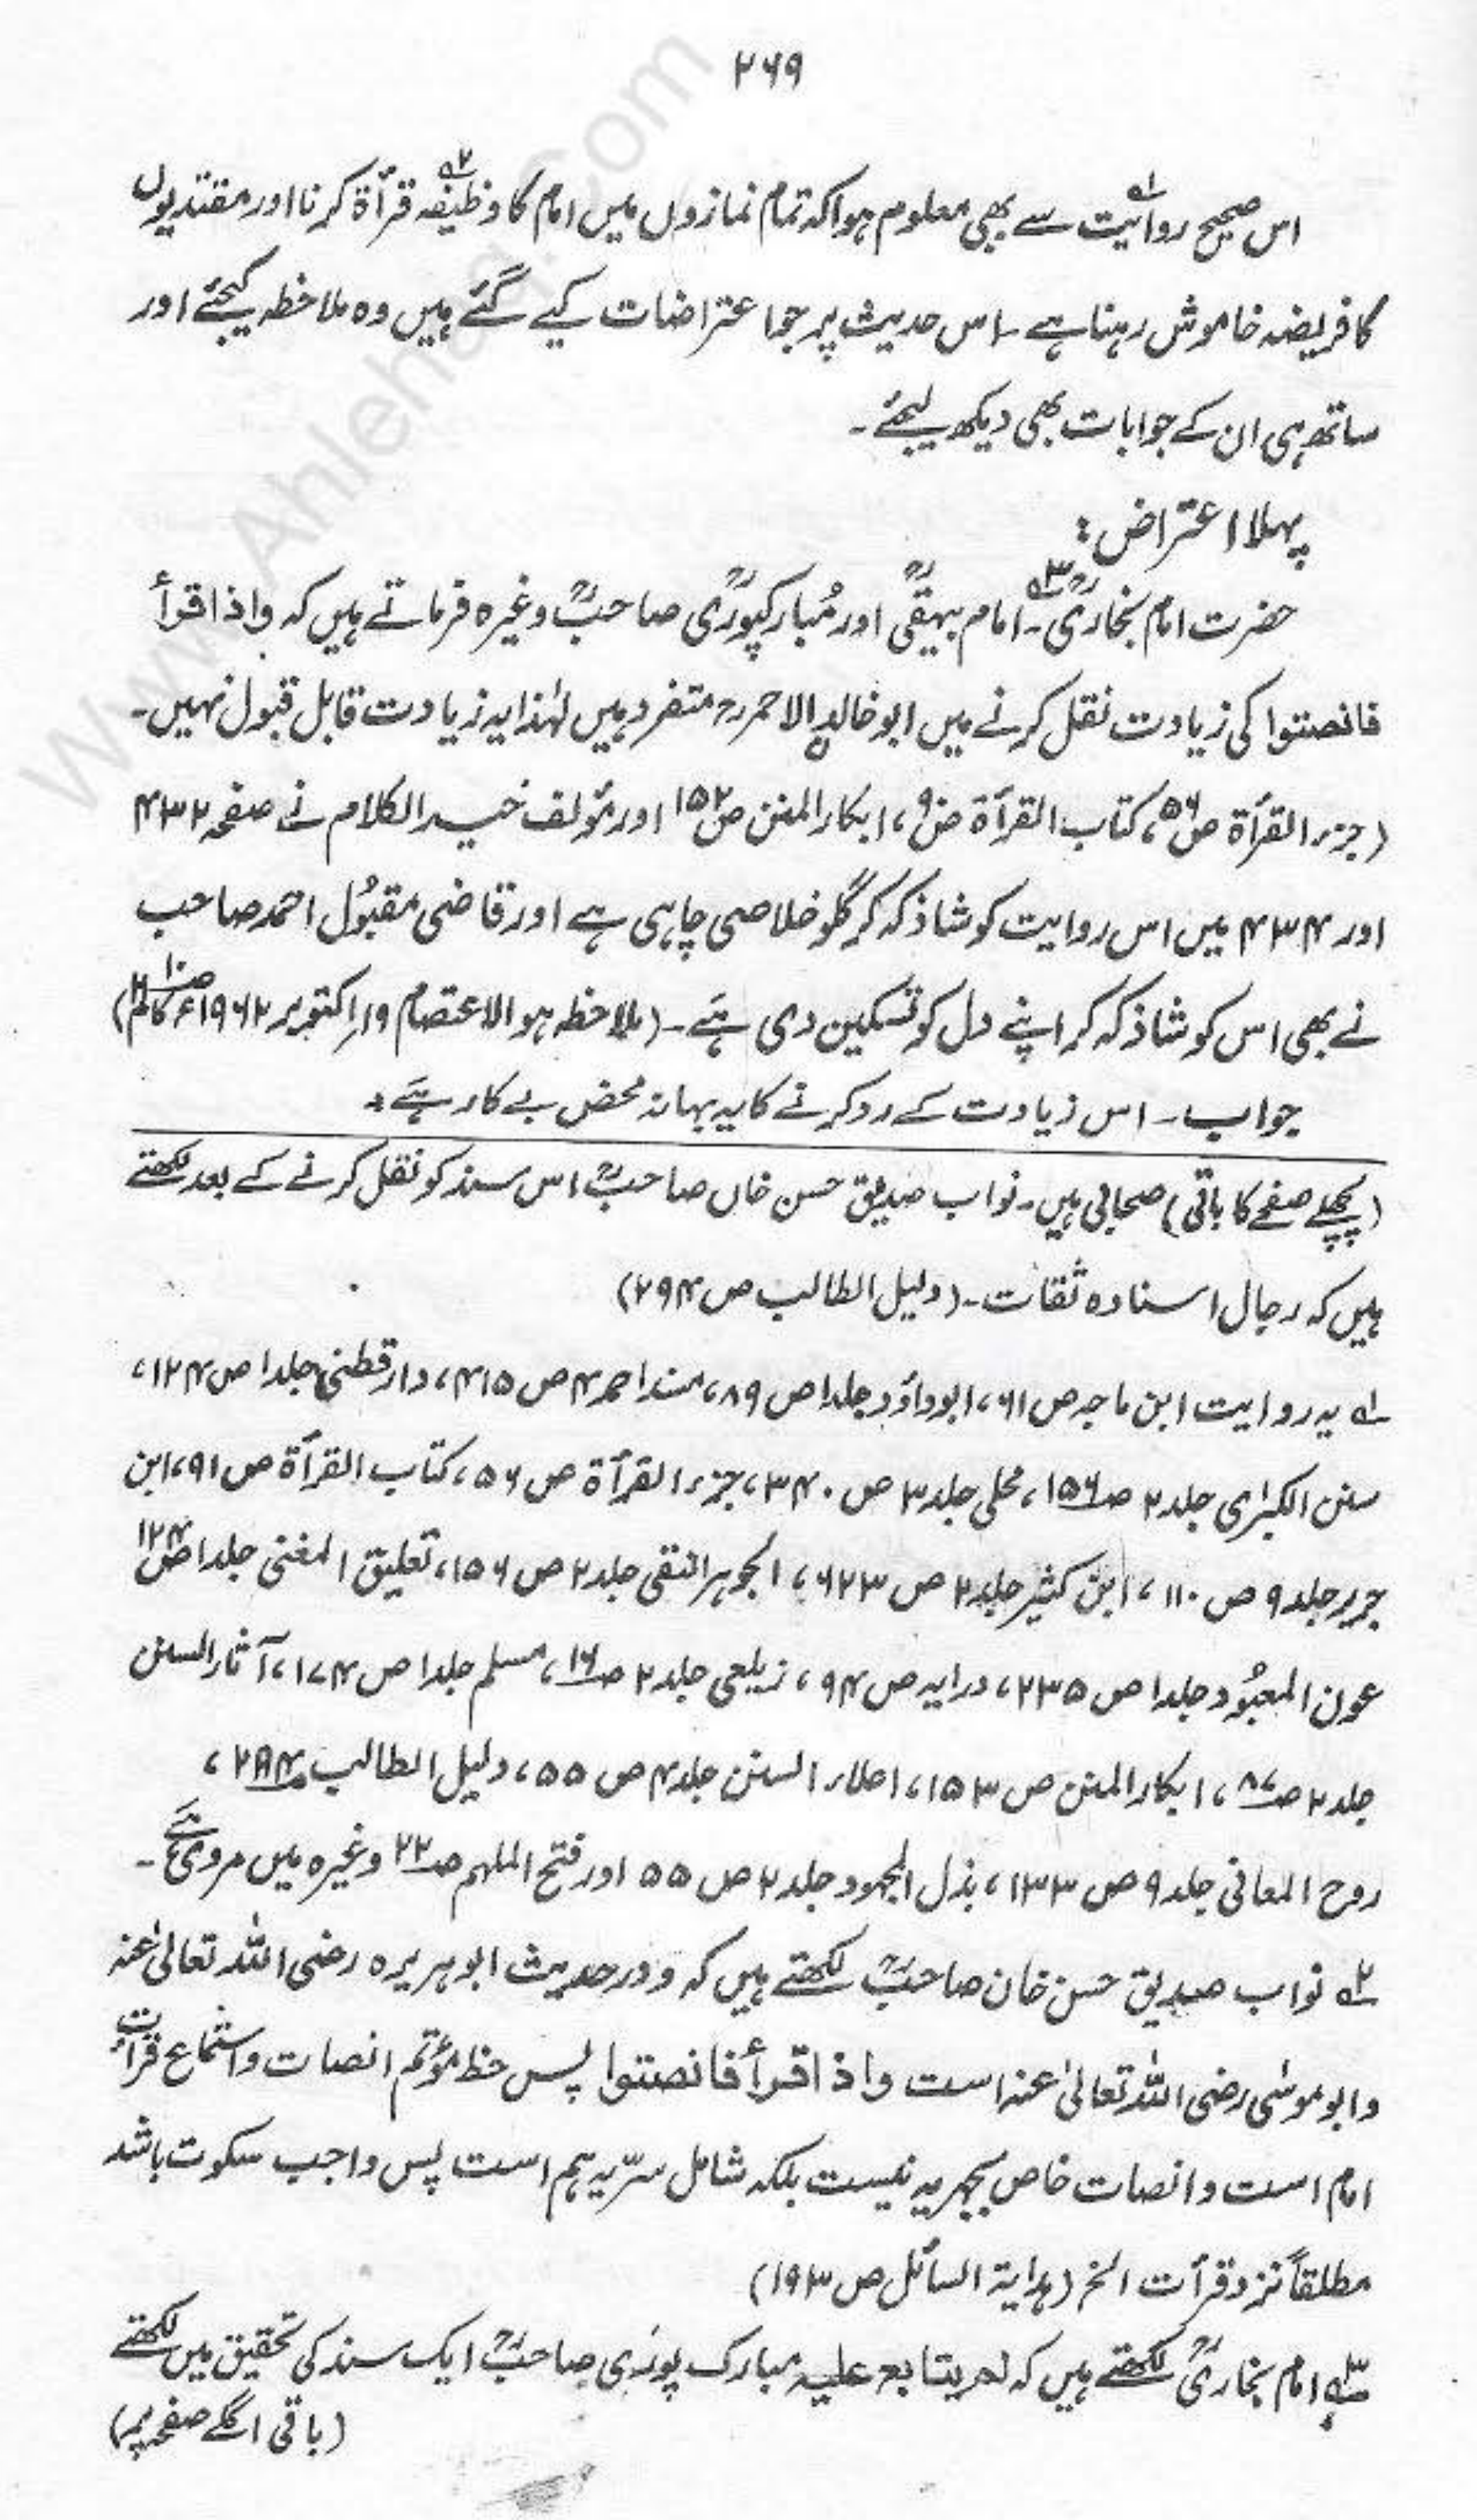 ۲۶۹
اس صحیح روایت۱؎ سے بھی معلوم ہوا کہ تمام نمازوں میں امام کا وظیفہ۲؎ قرأۃ کرنا اور مقتدیوں
کا فریضہ خاموش رہنا ہے ۔ اس حدیث پر جو اعتراضات کیے گئے ہیں وہ ملاحظہ کیجئے اور
ساتھ ہی ان کے جوابات بھی دیکھ لیجئے ۔
پہلا اعتراض :
حضرت امام بخاریؒ۳؎ ۔ امام بیہقیؒ اور مُبارکپوریؒ صاحبؒ وغیرہ فرماتے ہیں کہ واذا قرأ
فانصتوا کی زیادت نقل کرنے میں ابو خالد الاحمر رح متفرد ہیں لہٰذا یہ زیادت قابل قبول نہیں ۔
(جزء القرأۃ ص۵۶، کتاب القرأۃ ص۹، ابکار المنن ص۱۵۲ اور مؤلف خیر الکلام نے صفحہ ۴۳۲
اور ۴۳۴ میں اس روایت کو شاذ کہ کر گلو خلاصی چاہی ہے اور قاضی مقبُول احمد صاحب
نے بھی اس کو شاذ کہ کر اپنے دل کو تسکین دی ہے ۔ (ملاحظہ ہو الاعتصام ۱۹ر اکتوبر ۱۹۶۲ء ص۱۰ کالم۲)
جواب ۔ اس زیادت کے رد کرنے کا یہ بہانہ محض بے کار ہے ؛
(پچھلے صفحے کا باقی) صحابی ہیں ۔ نواب صدیق حسن خاں صاحبؒ اس سند کو نقل کرنے کے بعد لکھتے
ہیں کہ رجال اسنادہ ثقات ۔ (دلیل الطالب ص ۲۹۴)
۱؎ یہ روایت ابن ماجہ ص ۶۱، ابوداؤد جلد۱ ص ۸۹، مسند احمد ۴ ص ۴۱۵، دارقطنی جلد۱ ص ۱۲۴،
سنن الکبرٰی جلد ۲ ص۱۵۶، محلی جلد ۳ ص ۳۴۰، جزء القرأۃ ص ۵۶، کتاب القرأۃ ص ۹۱، ابن
جریر جلد ۹ ص ۱۱۰، ابن کثیر جلد ۲ ص ۶۲۳، الجوہر النقی جلد ۲ ص ۱۵۶، تعلیق المغنی جلد۱ ص۱۲۴
عون المعبُود جلد۱ ص ۲۳۵، درایہ ص ۹۴، زیلعی جلد ۲ ص۱۶، مسلم جلد۱ ص ۱۷۴، آثار السنن
جلد ۲ ص۸۷، ابکار المنن ص ۱۵۳، اعلاء السنن جلد ۴ ص ۵۵، دلیل الطالب ص۲۸۴،
روح المعانی جلد ۹ ص ۱۳۳، بذل المجہود جلد ۲ ص ۵۵ اور فتح الملہم ص۲۲ وغیرہ میں مروی ہے ۔
۲؎ نواب صدیق حسن خان صاحبؒ لکھتے ہیں کہ و در حدیث ابو ہریرہ رضی اللہ تعالیٰ عنہ
و ابو موسٰی رضی اللہ تعالیٰ عنہ است واذا قرأ فانصتوا پس حظ مؤتم انصات و استماع قرأت
امام است و انصات خاص بجہریہ نیست بلکہ شامل سرّیہ ہم است پس واجب سکوت باشد
مطلقاً نزد قرأت الخ (ہدایۃ السائل ص ۱۹۳)
۳؎ امام بخاریؒ لکھتے ہیں کہ لم یتابع علیہ مبارک پوری صاحبؒ ایک سند کی تحقیق میں لکھتے
(باقی اگلے صفحہ پر)